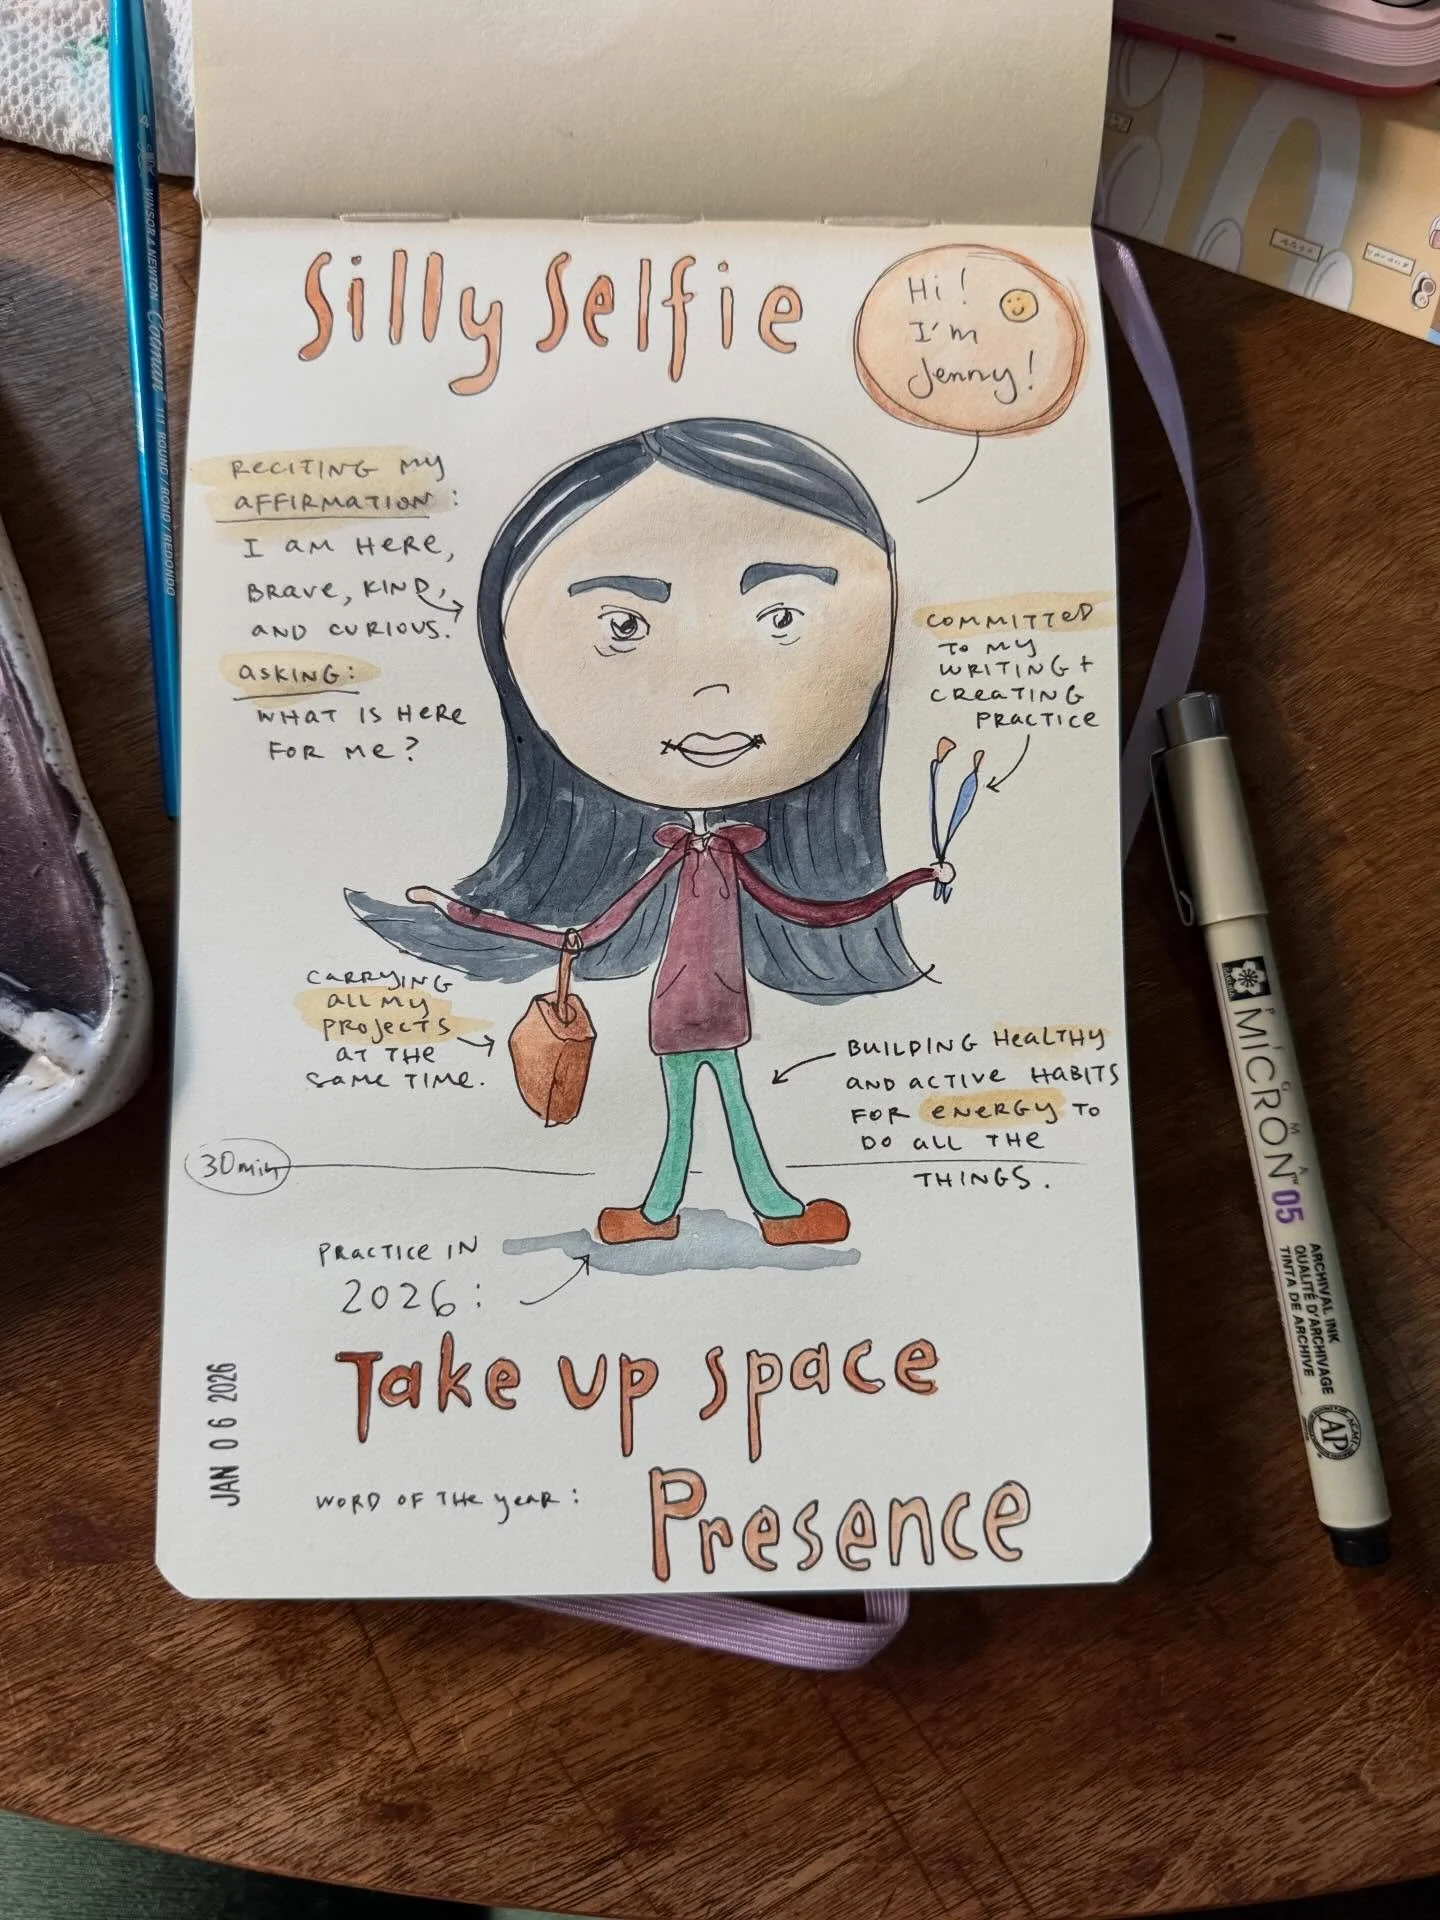 Silly Selfie
Hi!
I'm
Jenny!
RECITING MY
AFFIRMATION:
I AM HERE,
BRAVE, KIND,
AND CURIOUS.
ASKING:
WHAT IS HERE
FOR ME?
COMMITTED
TO MY
WRITING +
CREATING
PRACTICE
CARRYING
ALL MY
PROJECTS
AT THE
SAME TIME.
BUILDING HEALTHY
AND ACTIVE HABITS
FOR ENERGY TO
DO ALL THE
THINGS.
30min
PRACTICE IN
2026:
Take up space
WORD OF THE YEAR:
Presence
JAN 06 2026
4 WINSOR & NEWTON Cotman 111 ROUND / ROND / REDONDO
PIGMA
MICRON™ 05
ARCHIVAL INK
QUALITÉ D'ARCHIVAGE
TINTA DE ARCHIVE
AP